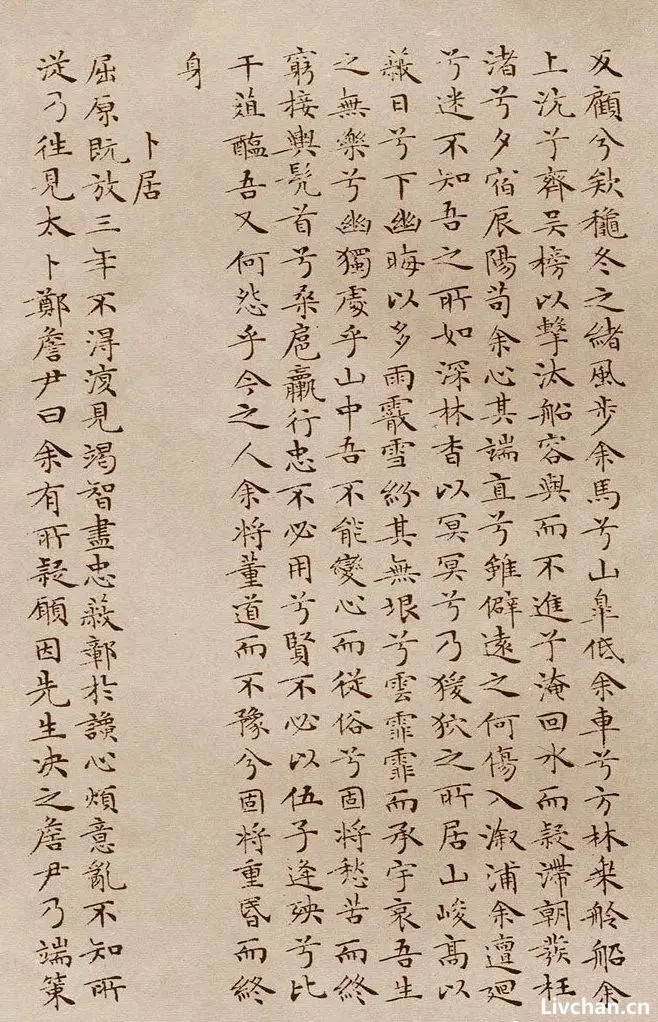 反顧兮欸穐冬之緒風步余馬兮山皐低余車兮方林乗舲船余
上沅兮齊吴榜以擊汰船容與而不進兮淹回水而疑滯朝發枉
渚兮夕宿辰陽苟余心其端直兮雖僻遠之何傷入溆浦余邅廻
兮迷不知吾之所如深林杳以冥冥兮乃猨狖之所居山峻高以
蔽日兮下幽晦以多雨霰雪紛其無垠兮雲霏霏而承宇哀吾生
之無樂兮幽獨處乎山中吾不能變心而従俗兮固將愁苦而終
窮接輿髡首兮桑扈臝行忠不必用兮賢不必以伍子逢殃兮比
干葅醢吾又何怨乎今之人余將董道而不豫兮固將重昏而終
身
卜居
屈原既放三年不得復見竭智盡忠蔽鄣於讒心煩意亂不知所
従乃往見太卜鄭詹尹曰余有所疑願因先生决之詹尹乃端策
Livchan.cn